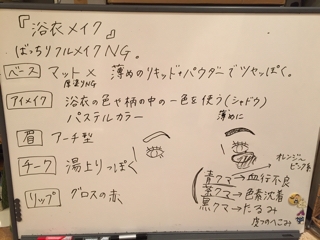 『浴衣メイク』
ばっちりフルメイクNG。
ベース マット× 薄めのリキッド+パウダーでツヤっぽく。
厚塗りNG
アイメイク 浴衣の色や柄の中の一色を使う(シャドウ)
パステルカラー 薄めに
眉 アーチ型
オレンジ〜
ピンク系
チーク 湯上りっぽく
青クマ→血行不良
茶クマ→色素沈着
黒クマ→たるみ
リップ グロスの赤